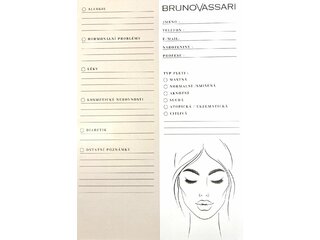 ALERGIE
HORMONÁLNÍ PROBLÉMY
LÉKY
KOSMETICKÉ NEDUHY
DIABETIK
OSTATNÍ POZNÁMKY
BRUNOVASSARI
JMÉNO :
TELEFON :
E-MAIL :
NAROZENINY :
PROFESE :
TYP PLETI :
MASTNÁ
NORMÁLNÍ/SMÍŠENÁ
AKNÓZNÍ
SUCHÁ
ATOPICKÁ / EKZEMATICKÁ
CITLIVÁ